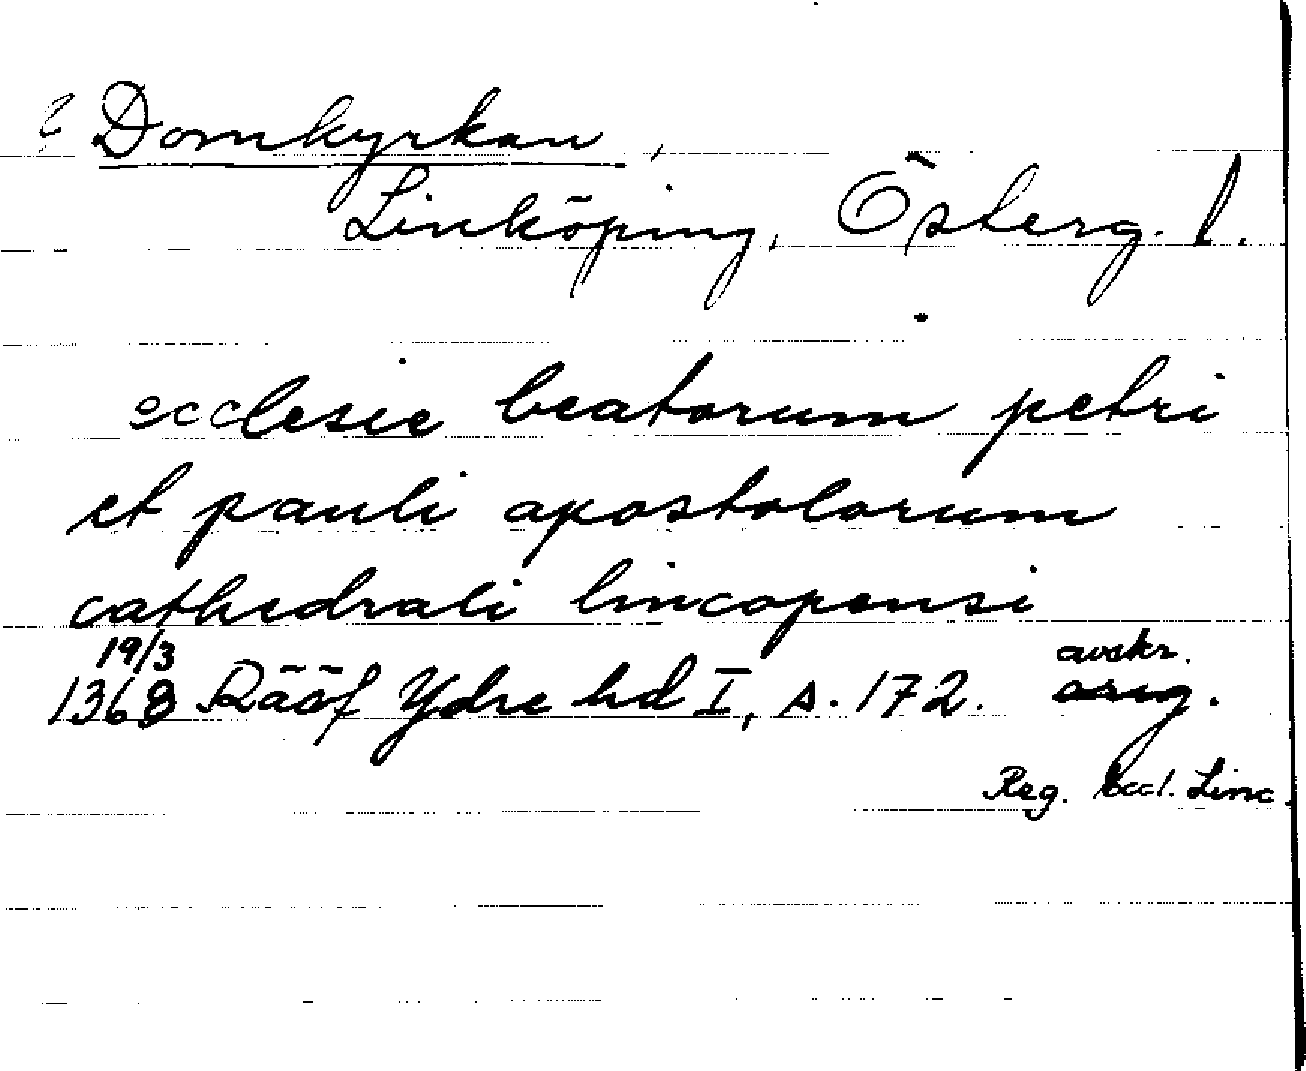 ? Domkyrkan,
Linköping, Österg. l.
ecclesie beatorum petri
et pauli apostolorum
cathedrali lincopensi
19/3 avskr.
1368 Rääf Ydre hd I, s. 172. orig.
Reg. Eccl. Linc.